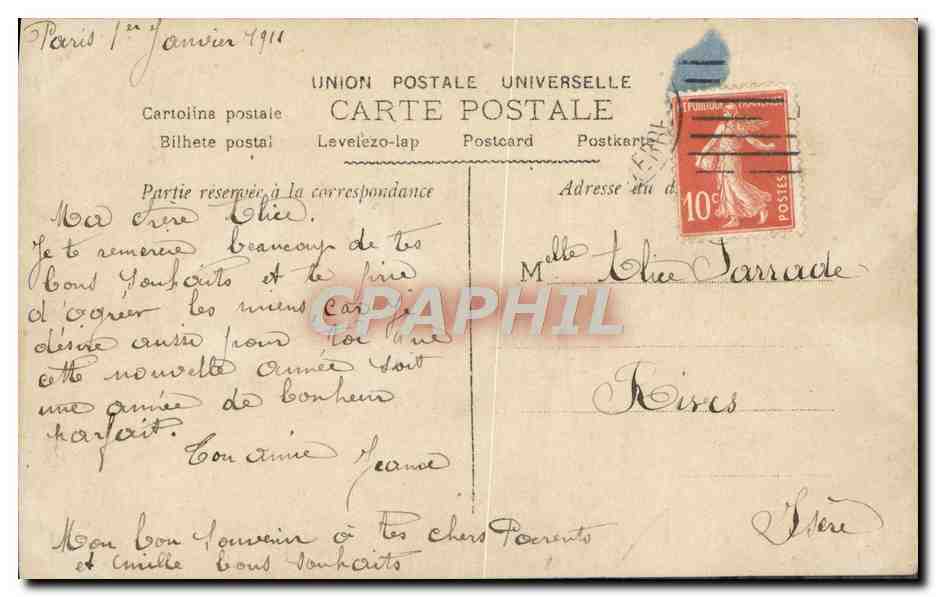 Paris 1er Janvier 1911
UNION POSTALE UNIVERSELLE
CARTE POSTALE
Cartolina postale
Bilhete postal Levelezo-lap Postcard Postkarte
Partie réservée à la correspondance
Adresse du d
RÉPUBLIQUE FRANÇAISE
10c POSTES
Ma chère Alice.
Je te remercie beaucoup de tes
bons souhaits et te prie
d'agréer les miens car je
désire aussi pour toi que
cette nouvelle année soit
une année de bonheur
parfait.
Ton amie Jeanne
Mon bon souvenir à tes chers Parents
et mille bons souhaits
Melle Alice Jarrade
Rives
Isère
CPAPHIL